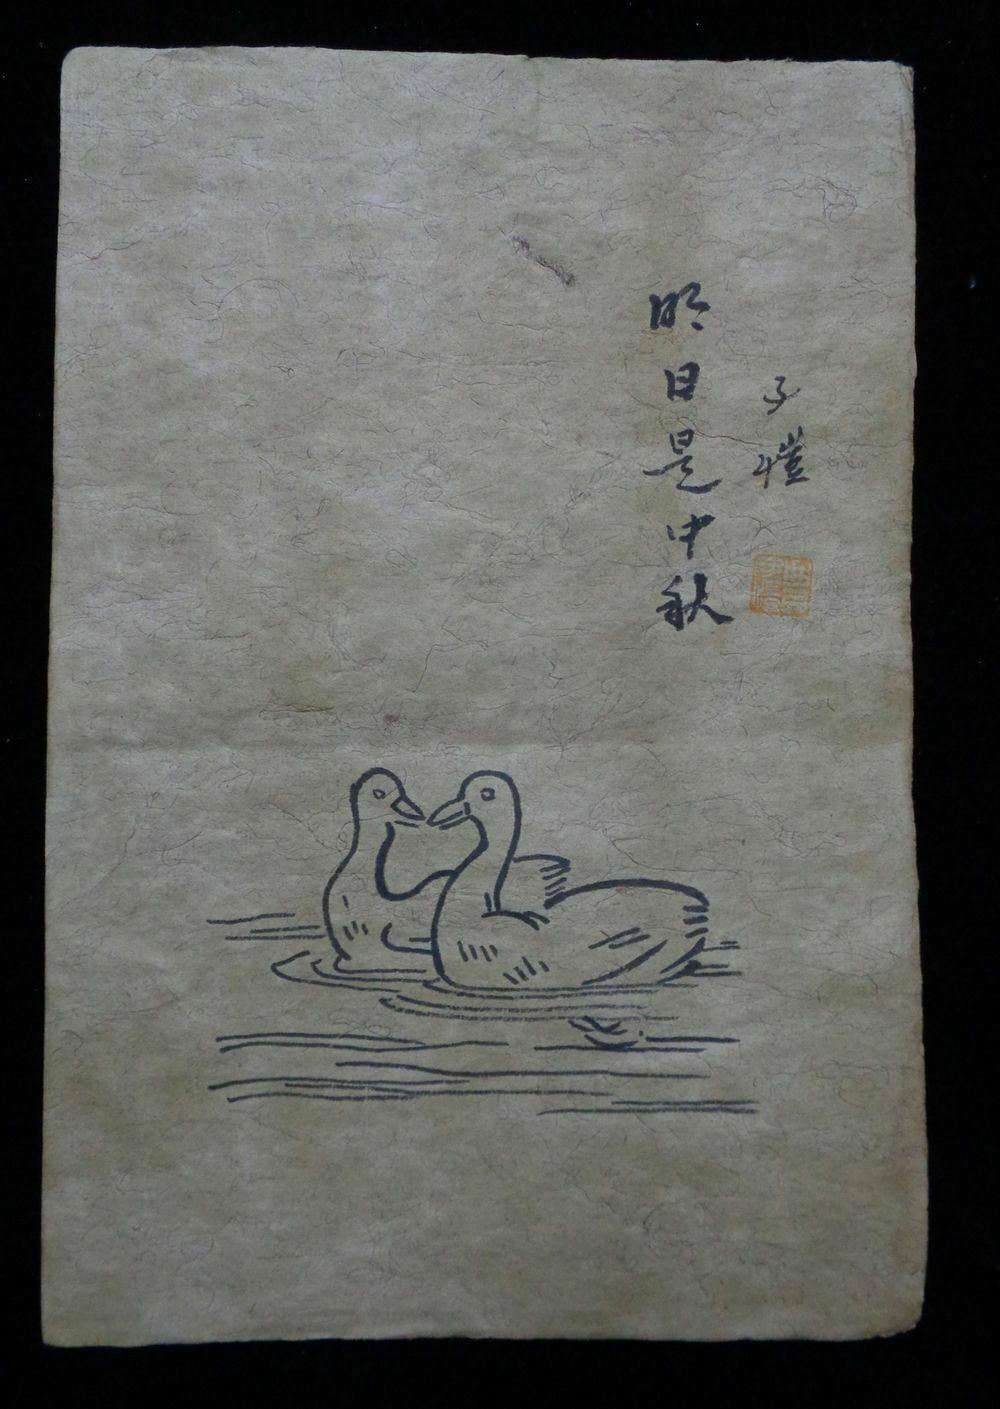 明日是中秋
子愷